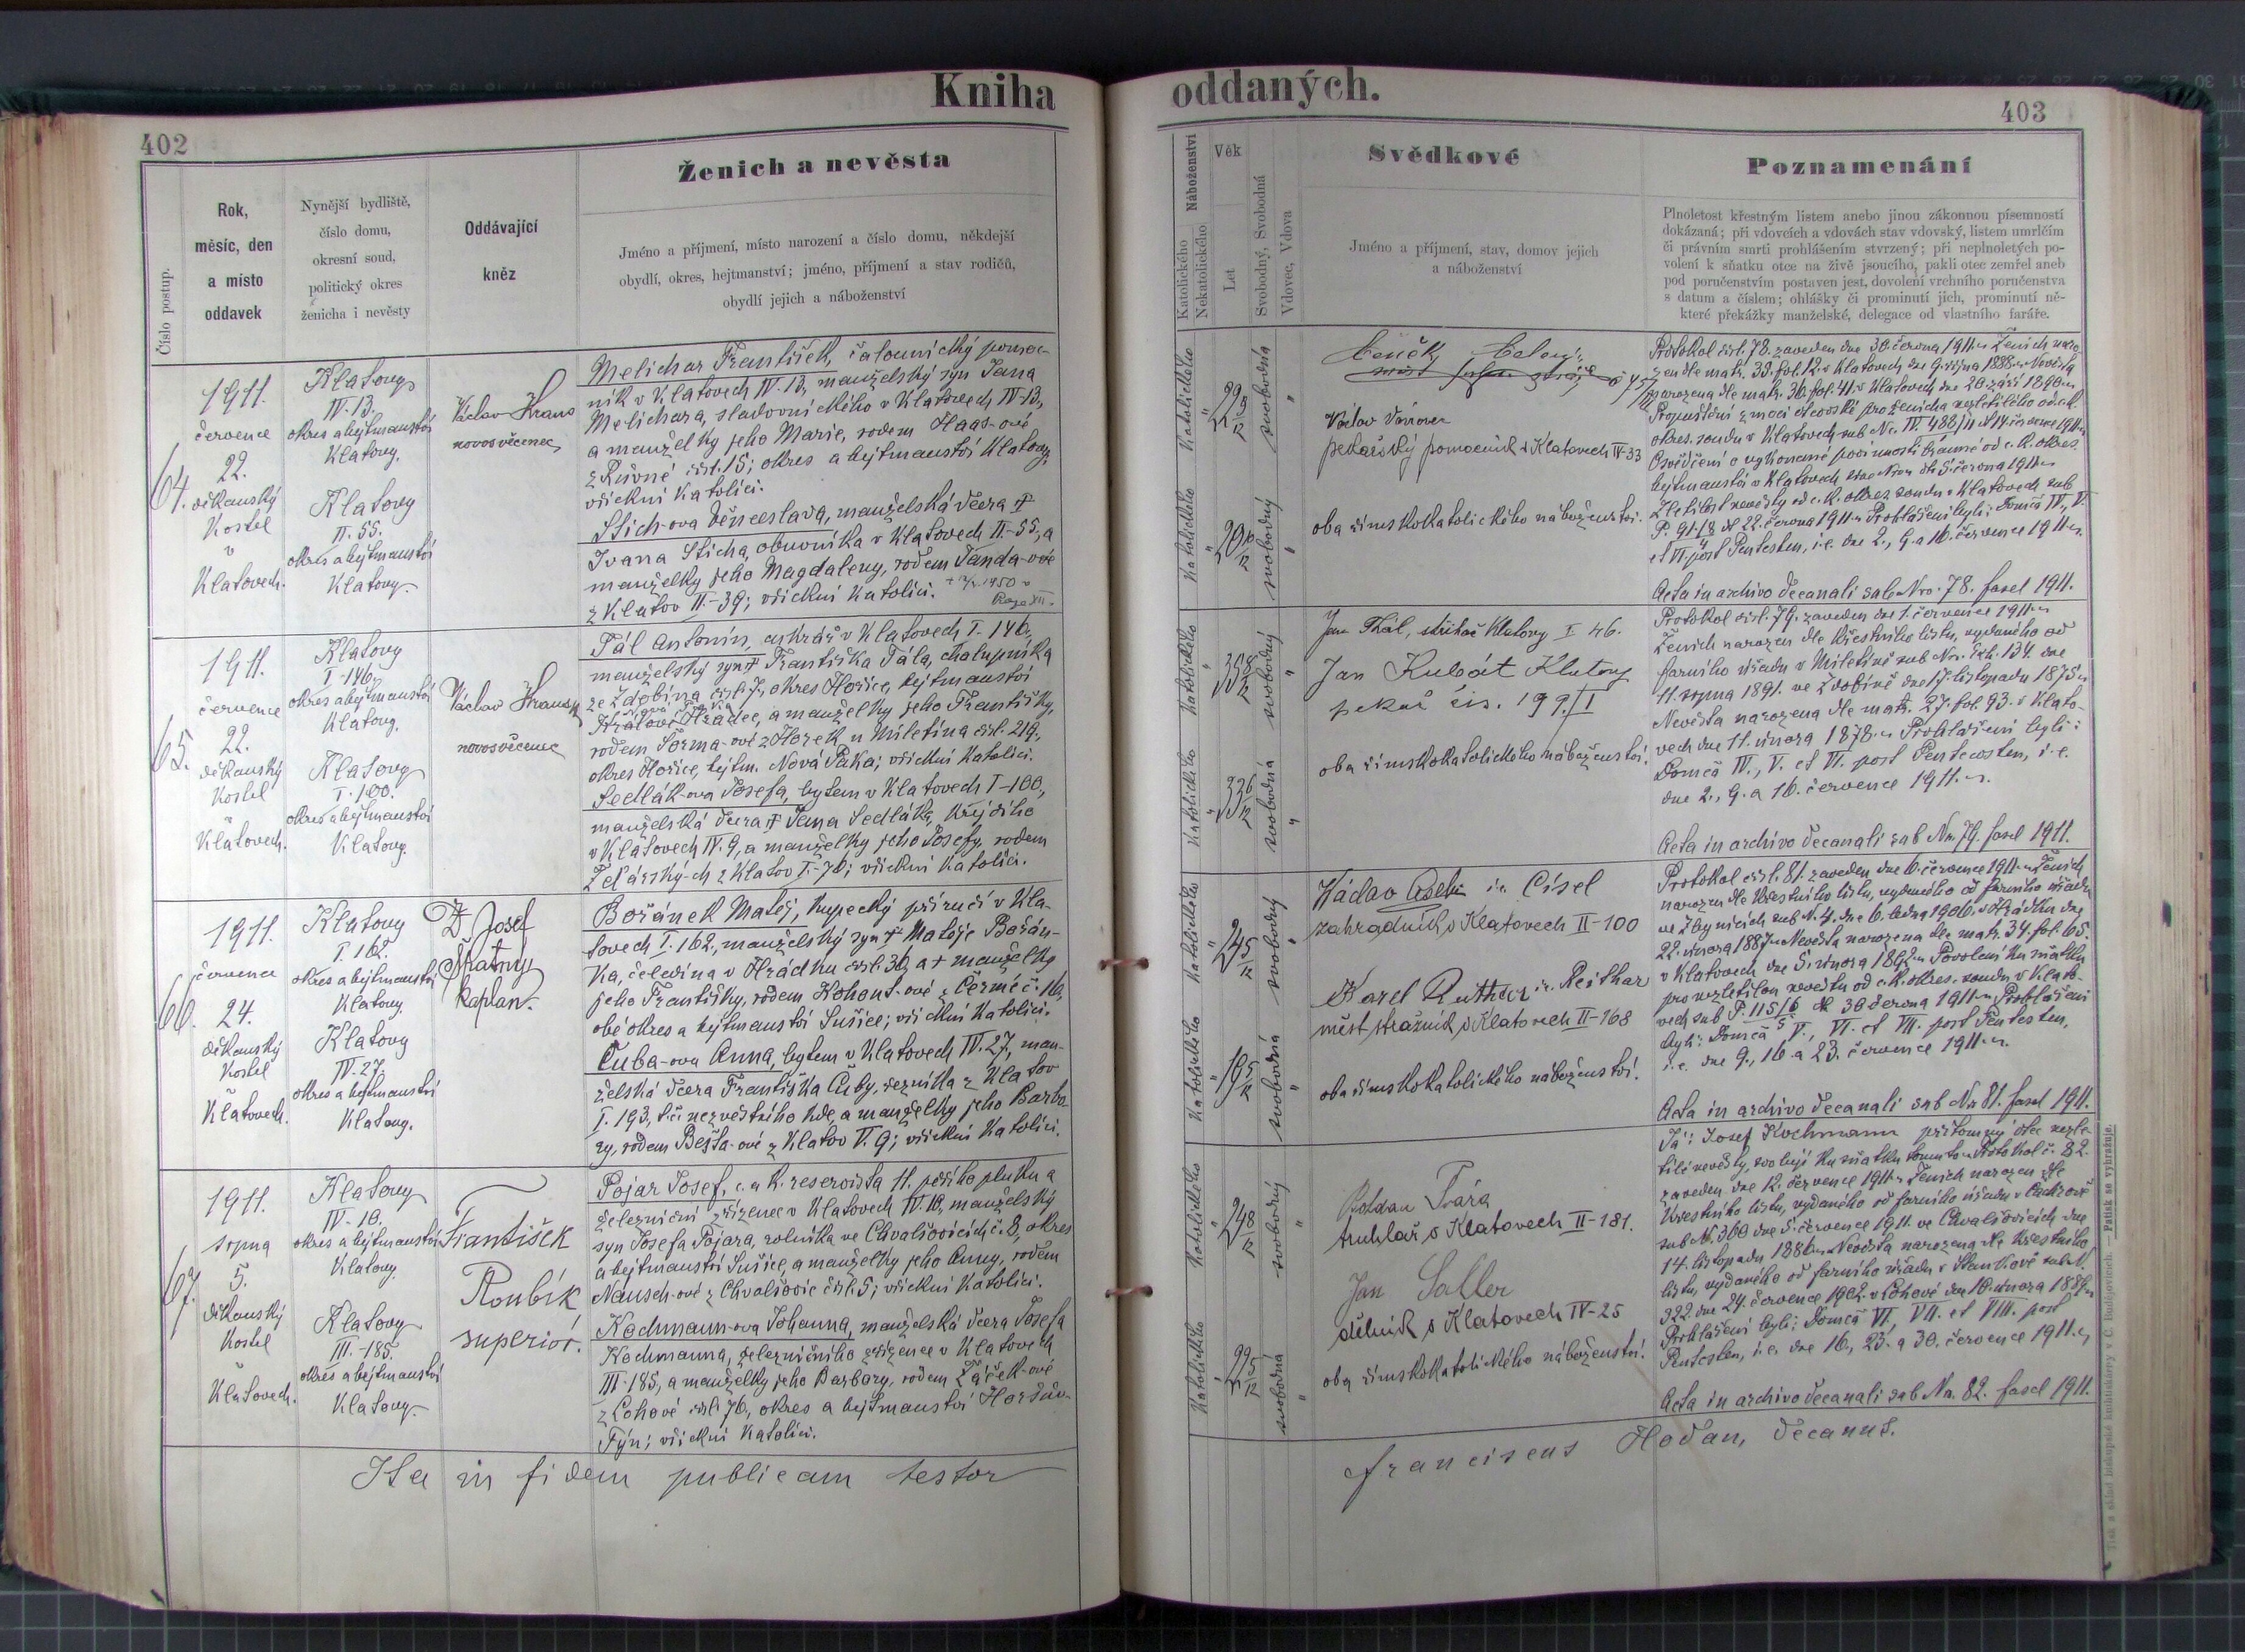 Kniha
oddaných.
402
403
Číslo postup.
Rok,
měsíc, den
a místo
oddavek
Nynější bydliště,
číslo domu,
okresní soud,
politický okres
ženicha i nevěsty
Oddávající
kněz
Ženich a nevěsta
Jméno a příjmení, místo narození a číslo domu, někdejší
obydlí, okres, hejtmanství; jméno, příjmení a stav rodičů,
obydlí jejich a náboženství
Náboženství
Katolického
Nekatolického
Věk
Let
Svobodný, Svobodná
Vdovec, Vdova
Svědkové
Jméno a příjmení, stav, domov jejich
a náboženství
Poznamenání
Plnoletost křestným listem anebo jinou zákonnou písemností
dokázaná; při vdovcích a vdovách stav vdovský, listem umrlčím
či právním smrti prohlášením stvrzený; při neplnoletých po-
volení k sňatku otce na živě jsoucího, pakli otec zemřel aneb
pod poručenstvím postaven jest, dovolení vrchního poručenstva
s datum a číslem; ohlášky či prominutí jich, prominutí ně-
které překážky manželské, delegace od vlastního faráře.
64.
1911.
července
22.
děkanský
kostel
v
Klatovech.
Klatovy
IV. 13.
okres a hejtmanství
Klatovy.
Klatovy
II. 55.
okres a hejtmanství
Klatovy.
Václav
novosvěcenec
Melichar František, čalounický pomoc-
ník v Klatovech IV. 13, manželský syn Jana
Melichara, sladovnického v Klatovech IV-13,
a manželky jeho Marie, rodem Haas-ové
čísl. 15; okres a hejtmanství Klatovy,
všickni katolíci.
Stich-ova Věnceslava, manželská dcera †
Ivana Sticha, obuvníka v Klatovech II-55, a
manželky jeho Magdaleny, rodem Janda-ové
z Klatov II-39; všickni katolíci.
Katolického
svobodná
Katolického
svobodný
Čeněk
Václav
pekařský pomocník v Klatovech IV-33
oba římskokatolického náboženství.
Protokol čísl. 78. zaveden dne 30. června 1911. Ženich naro-
zen dle matr. 35. fol. 12. v Klatovech dne 9. října 1888. Nevěsta
narozena dle matr. 36. fol. 41. v Klatovech dne 20. září 1890.
Propuštění z moci otcovské pro ženicha nezletilého od c.k.
okres. soudu v Klatovech sub Nc. IV. 488/11
Osvědčení o vykonané povinnosti branné od c. k. okres.
hejtmanství v Klatovech 5. června 1911
Zletilost nevěsty od c. k. okres. soudu v Klatovech sub
P. 91/8 dt 22. června 1911. Prohlášení byli: Domcá IV., V.
et VI. post Pentecosten, i.e. dne 2., 9. a 16. července 1911.
Acta in archivo decanali sub Nro. 78. fascl 1911.
65.
1911.
července
22.
děkanský
kostel
v
Klatovech.
Klatovy
I-146.
okres a hejtmanství
Klatovy.
Klatovy
I. 100.
okres a hejtmanství
Klatovy.
Václav
novosvěcenec
Tál Antonín, cukrář v Klatovech I-146,
manželský syn † Františka Tála, chalupníka
ze Zdobína čísl. 7, okres Hořice, hejtmanství
Králové Hradec, a manželky jeho Františky,
rodem z Horek u Miletína čísl. 219,
okres Hořice, hejtm. Nová Paka; všickni katolíci.
Sedlák-ova Josefa, bytem v Klatovech I-100,
manželská dcera † Jana Sedláka, krejčího
v Klatovech IV. 9, a manželky jeho Josefy, rodem
z Klatov I-76; všickni katolíci.
Katolického
svobodný
Katolického
svobodná
Jan Klatovy I 46.
Jan Kubát Klatovy
pekař čís. 199/I
oba římskokatolického náboženství.
Protokol čísl. 79. zaveden dne 1. července 1911.
Ženich narozen dle křestního listu, vydaného od
farního úřadu v Miletíně sub Nro. Exh. 134. dne
11. srpna 1891. ve Zdobíně dne 17. listopadu 1875.
Nevěsta narozena dle matr. 27. fol. 93. v Klato-
vech dne 11. února 1878. Prohlášeni byli:
Domcá IV., V. et VI. post Pentecosten, i.e.
dne 2., 9. a 16. července 1911.
Acta in archivo decanali sub Nro 79. fascl 1911.
66.
1911.
července
24.
děkanský
kostel
v
Klatovech.
Klatovy
I. 162.
okres a hejtmanství
Klatovy.
Klatovy
IV. 27.
okres a hejtmanství
Klatovy.
Josef
Šťatný
kaplan.
Bořánek Matěj, kupecký příručí v Kla-
tovech I. 162., manželský syn † Matěje Bořán-
ka, čeledína v Hrádku čísl. 30, a † manželky
jeho Františky, rodem Kohout-ové z Čermé č. 16,
obé okres a hejtmanství Sušice; všickni katolíci.
Čuba-ova Anna, bytem v Klatovech IV. 27, man-
želská dcera Františka Čuby, řezníka z Klatov
I. 193, t.č. nezvěstného kde, a manželky jeho Barbo-
ry, rodem Bešta-ové z Klatov V. 9; všickni katolíci.
Katolického
svobodný
Katolického
svobodná
Václav i.e. Císel
zahradník v Klatovech II-100
Karel i.e. Reithar
měst. strážník v Klatovech II-168
oba římskokatolického náboženství.
Protokol čísl. 81. zaveden dne 6. července 1911. Ženich
narozen dle křestního listu, vydaného od farního úřadu
ve Zbynicích sub N. 4. dne 6. ledna 1906. v Hrádku dne
22. února 1887. Nevěsta narozena dle matr. 34. fol. 65.
v Klatovech dne 5. února 1892. Povolení ku sňatku
pro nezletilou nevěstu od c.k. okres. soudu v Klato-
vech sub P. 115/6 dt 30 června 1911. Prohlášeni
byli: Domcá V., VI. et VII. post Pentecosten,
i.e. dne 9., 16. a 23. července 1911.
Acta in archivo decanali sub Nr 81. fascl 1911.
67.
1911.
srpna
5.
děkanský
kostel
v
Klatovech.
Klatovy
IV-10.
okres a hejtmanství
Klatovy.
Klatovy
III-185.
okres a hejtmanství
Klatovy.
František
Roubík
superior.
Pojar Josef, c. a k. reservista 11. pěšího pluku a
železniční zřízenec v Klatovech IV. 10, manželský
syn Josefa Pojara, rolníka ve Chvalšovicích č. 8, okres
a hejtmanství Sušice, a manželky jeho Anny, rodem
Nausch-ové z Chvalšovic čísl. 5; všickni katolíci.
Kochmann-ova Johanna, manželská dcera Josefa
Kochmanna, železničního zřízence v Klatovech
III-185, a manželky jeho Barbory, rodem Žáček-ové
z Lohové čísl. 76, okres a hejtmanství Horšův-
Týn; všickni katolíci.
Katolického
svobodný
Katolického
svobodná
Bohdan Tvára
truhlář v Klatovech II-181.
Jan Saller
dělník v Klatovech IV-25
oba římskokatolického náboženství.
Já: Josef Kochmann přítomný otec nezle-
tilé nevěsty, svoluji ku sňatku tomuto. Protokol č. 82.
zaveden dne 12. července 1911. Ženich narozen dle
křestního listu, vydaného od farního úřadu v Čachrově
sub N. 360 dne 5. července 1911. ve Chvalšovicích dne
14. listopadu 1886. Nevěsta narozena dle křestního
listu, vydaného od farního úřadu v Staňkově sub N.
322. dne 24. července 1902. v Lohové dne 10. února 1889.
Prohlášeni byli: Domcá VI., VII. et VIII. post
Pentecosten, i.e. dne 16., 23. a 30. července 1911.
Acta in archivo decanali sub No. 82. fascl 1911.
Ita in fidem publicam testor
Franciscus Hodan, decanus.
Tisk a sklad biskupské knihtiskárny v Č. Budějovicích. — Patisk se vyhražuje.